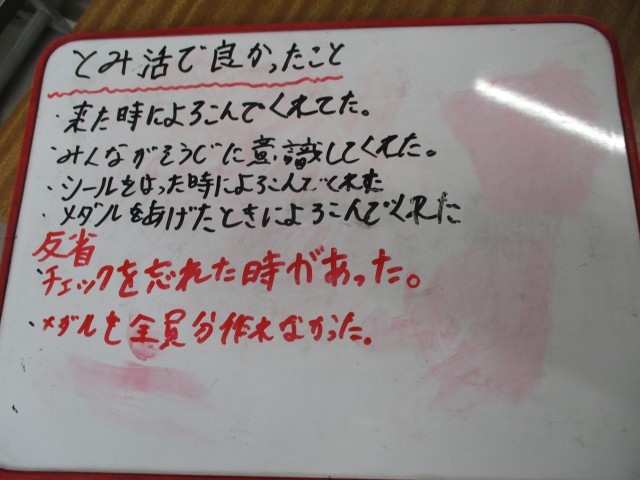 とみ活で良かったこと
・来た時によろこんでくれてた。
・みんながそうじに意識してくれた。
・シールをはった時によろこんでくれた
・メダルをあげたときによろこんでくれた
反省
・チェックを忘れた時があった。
・メダルを全員分作れなかった。